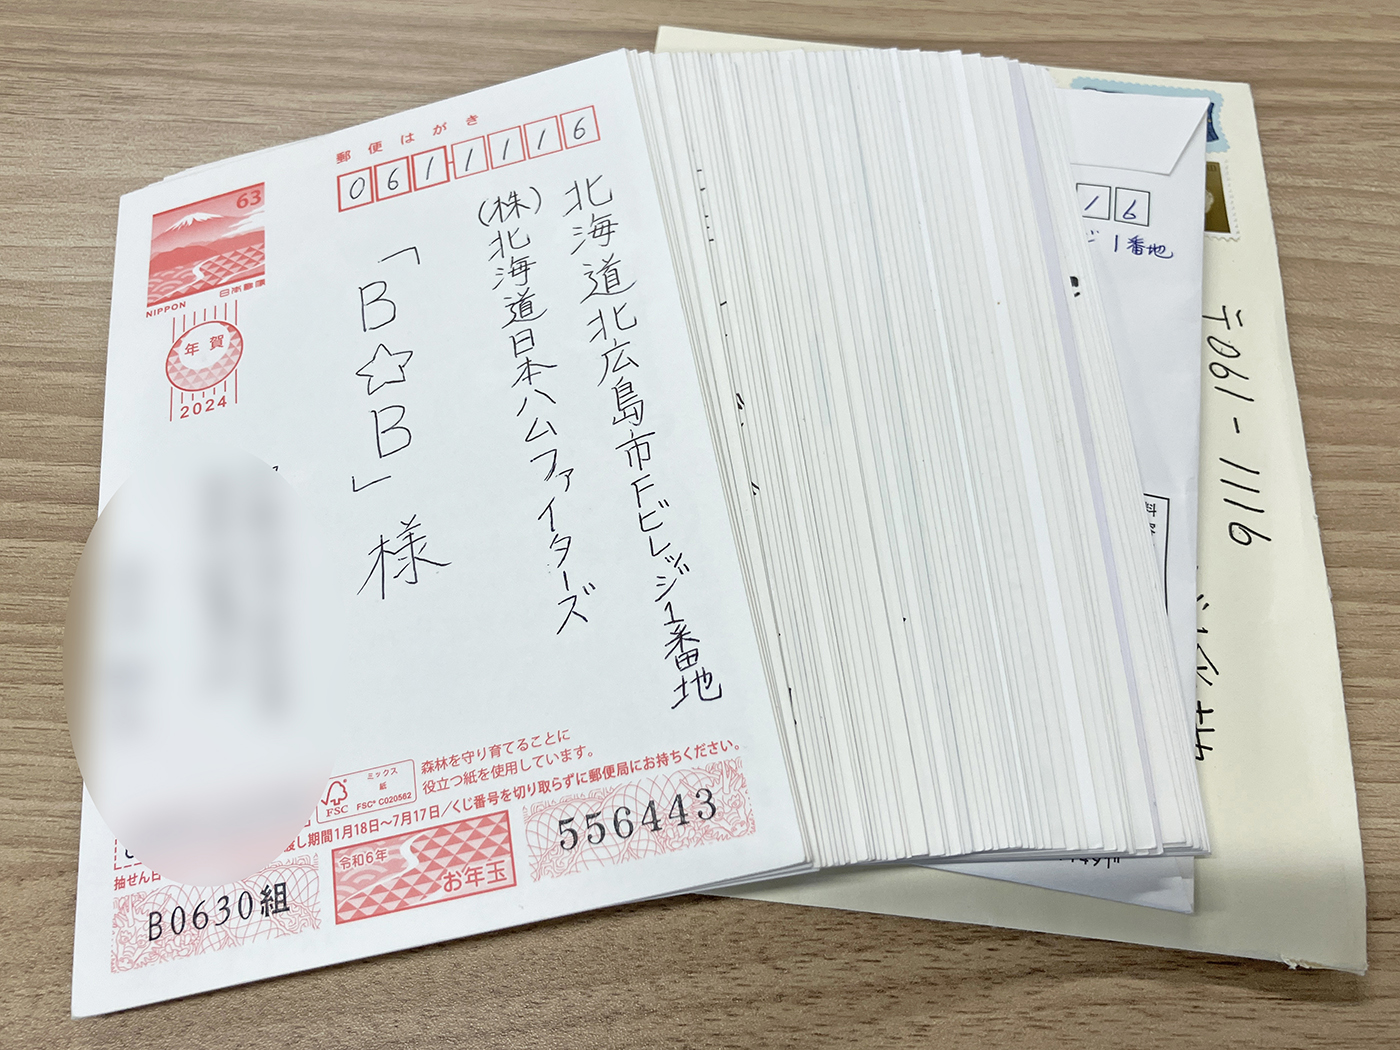 郵便はがき
0611116
63
NIPPON
日本郵便
年賀
2024
北海道北広島市Fビレッジ1番地
(株)北海道日本ハムファイターズ
「B☆B」様
ミックス
紙
FSC® C020562
FSC
森林を守り育てることに
役立つ紙を使用しています。
し期間1月18日～7月17日／くじ番号を切り取らずに郵便局にお持ちください。
抽せん日
B0630組
令和6年
お年玉
556443
16
ジ1番地
料
〒061-1116